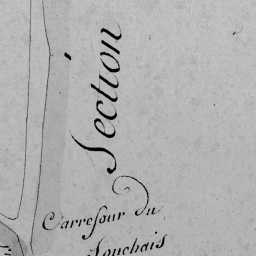 Section
Carrefour du
Souchais